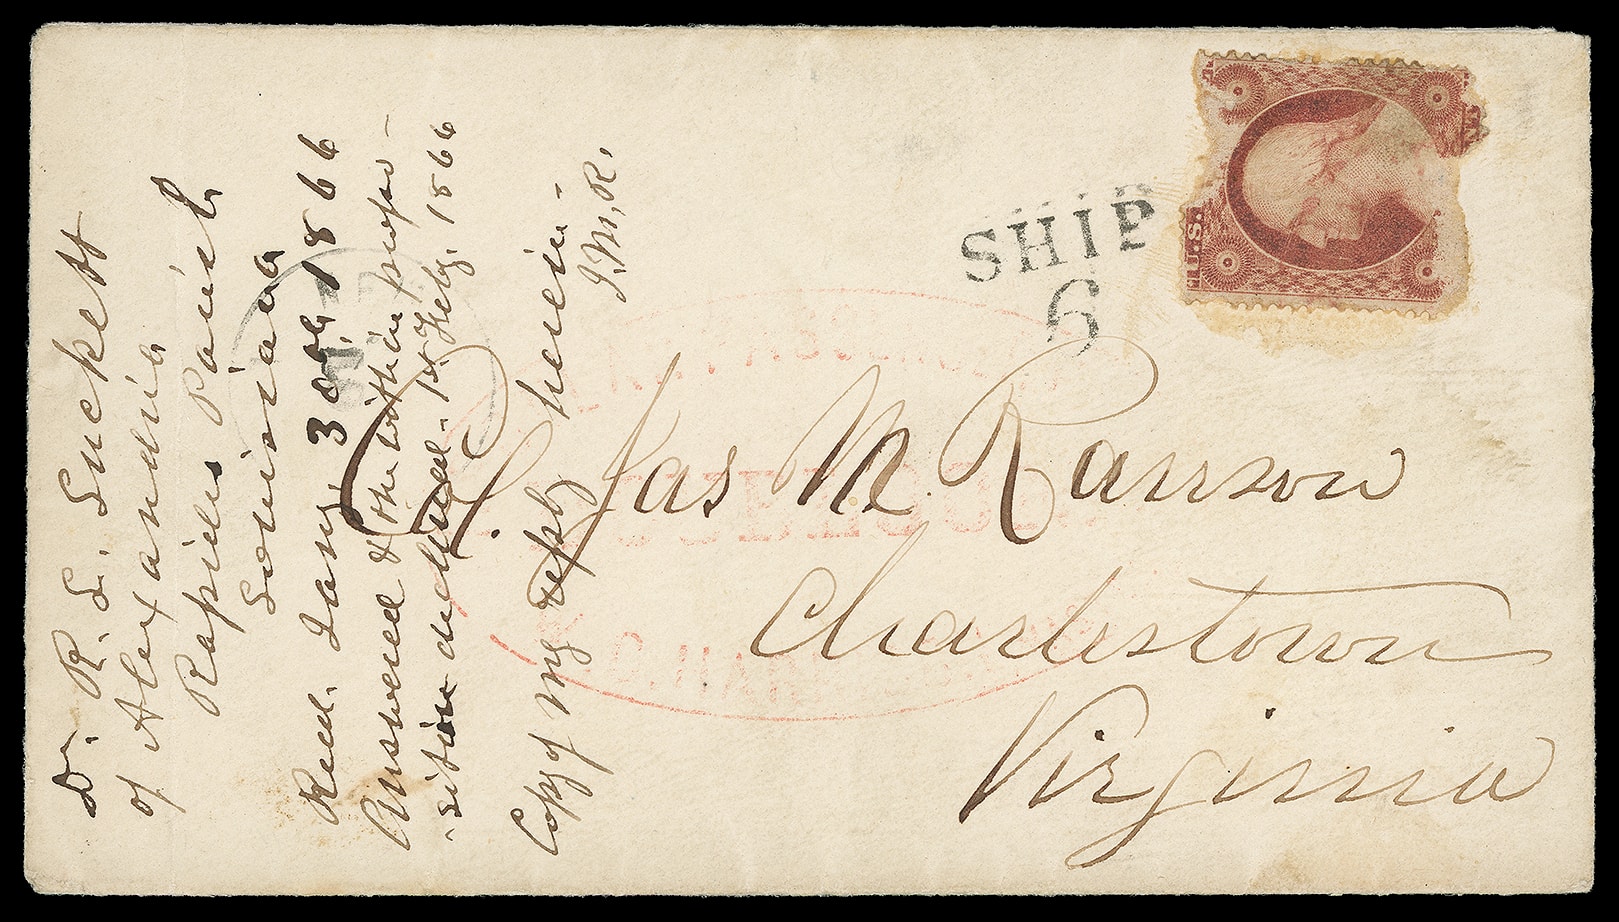 Dr. R. L. Luckett
of Alexandria
Rapides Parish
Louisiana
Recd. Jany. 30th, 1866
Answered & the within propo-
-sition declined. 1st Feby. 1866
Copy of my reply herein-
J. M. R.
SHIP
6
U.S.
Jas M. Ranson
Charlestown
Virginia